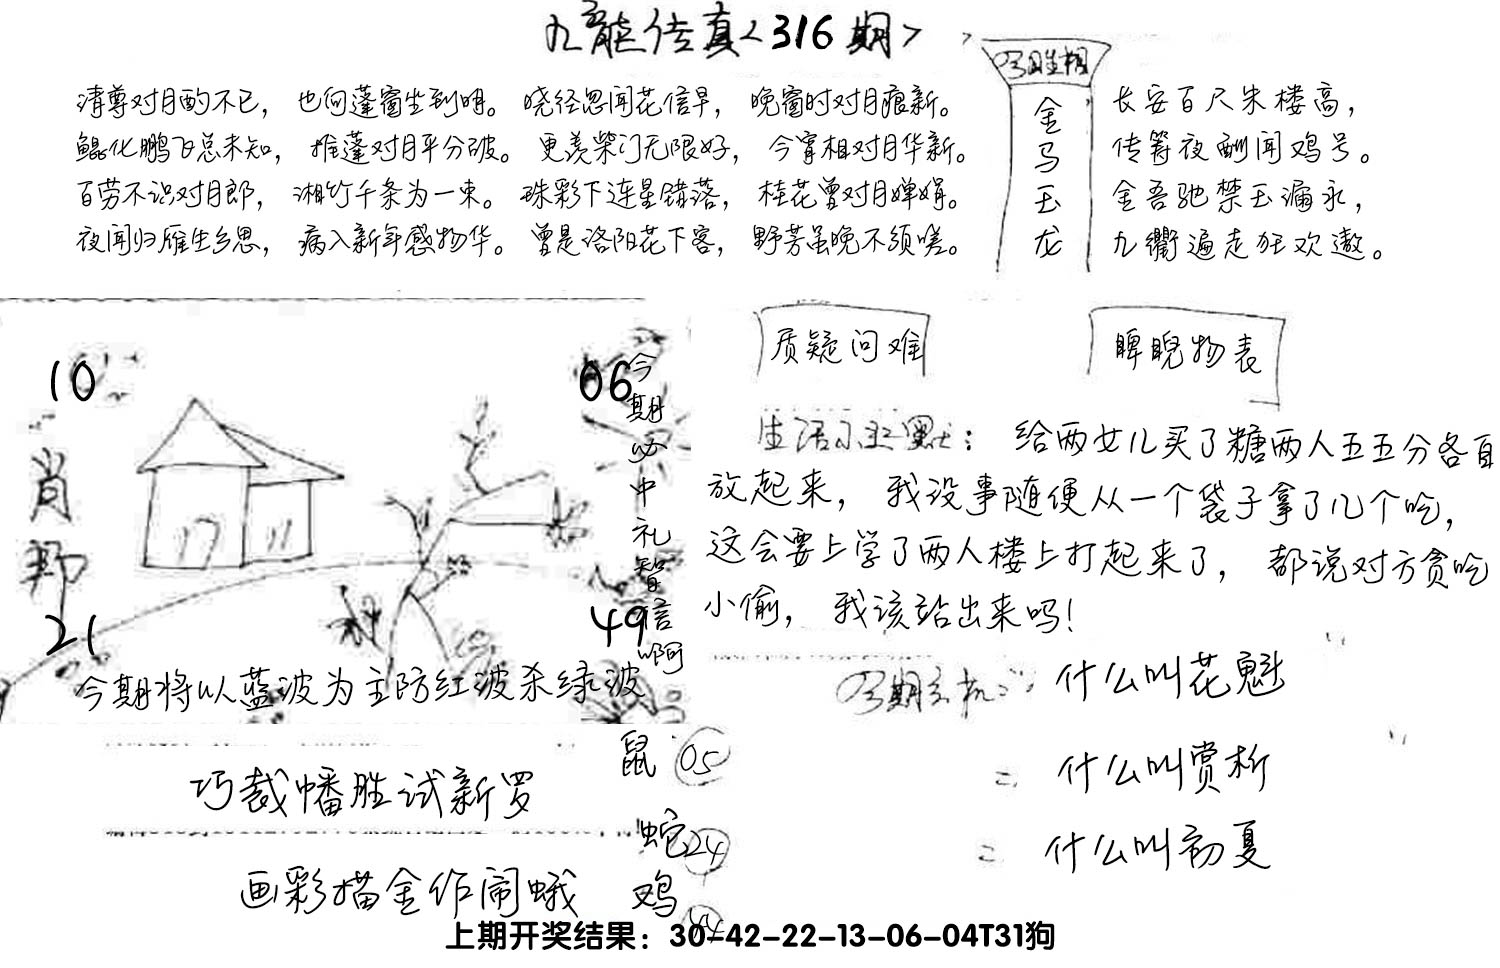 九龙传真<316期>
清尊对月酌不已，也向蓬窗坐到明。晓径忽闻花信早，晚窗时对月痕新。
鲲化鹏飞总未知，推蓬对月平分破。更羡柴门无限好，今宵相对月华新。
百劳不识对月郎，湘竹千条为一束。珠彩下连星错落，桂花曾对月婵娟。
夜闻归雁生乡思，病入新年感物华。曾是洛阳花下客，野芳虽晚不须嗟。
金马玉龙
长安百尺朱楼高，
传筹夜酬闻鸡号。
金吾驰禁玉漏永，
九衢遍走狂欢遨。
10
06
肖
21
49
今期必中礼智信啊
今期将以蓝波为主防红波杀绿波
质疑问难
睥睨物表
生活小幽默：给两女儿买了糖两人五五分各自
放起来，我没事随便从一个袋子拿了几个吃，
这会要上学了两人楼上打起来了，都说对方贪吃
小偷，我该站出来吗！
今期玄机：什么叫花魁
什么叫赏析
什么叫初夏
巧裁幡胜试新罗
画彩描金作闹蛾
鼠 05
蛇 24
鸡
上期开奖结果：30-42-22-13-06-04T31狗